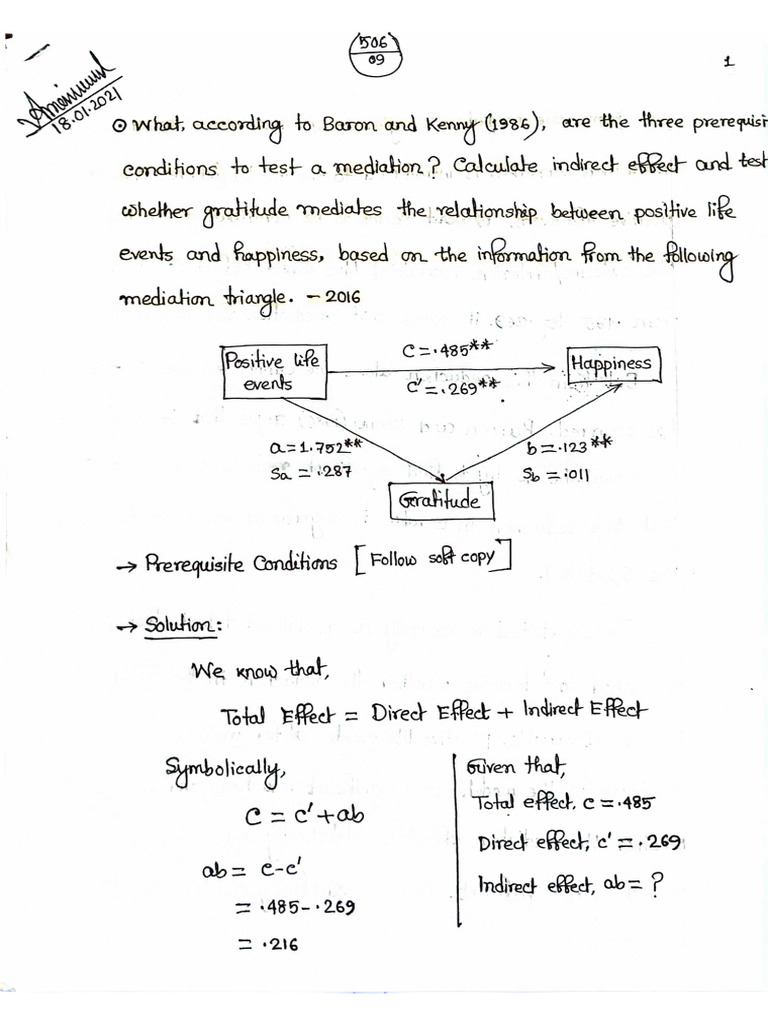 506
09
1
18.01.2021
⊙ What, according to Baron and Kenny (1986), are the three prerequisi
conditions to test a mediation? Calculate indirect effect and test
whether gratitude mediates the relationship between positive life
events and happiness, based on the information from the following
mediation triangle. - 2016
Positive life
events
C = .485**
C' = .269**
Happiness
a = 1.752**
Sa = .287
b = .123**
Sb = .011
Gratitude
→ Prerequisite Conditions [Follow soft copy]
→ Solution:
We know that,
Total Effect = Direct Effect + Indirect Effect
Symbolically,
C = c' + ab
ab = c - c'
= .485 - .269
= .216
Given that,
Total effect, c = .485
Direct effect, c' = .269
Indirect effect, ab = ?